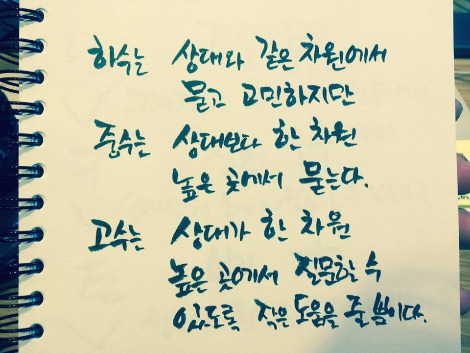 하수는 상대와 같은 차원에서
묻고 고민하지만
중수는 상대보다 한 차원
높은 곳에서 묻는다.
고수는 상대가 한 차원
높은 곳에서 질문할 수
있도록 작은 도움을 줄 뿐이다.